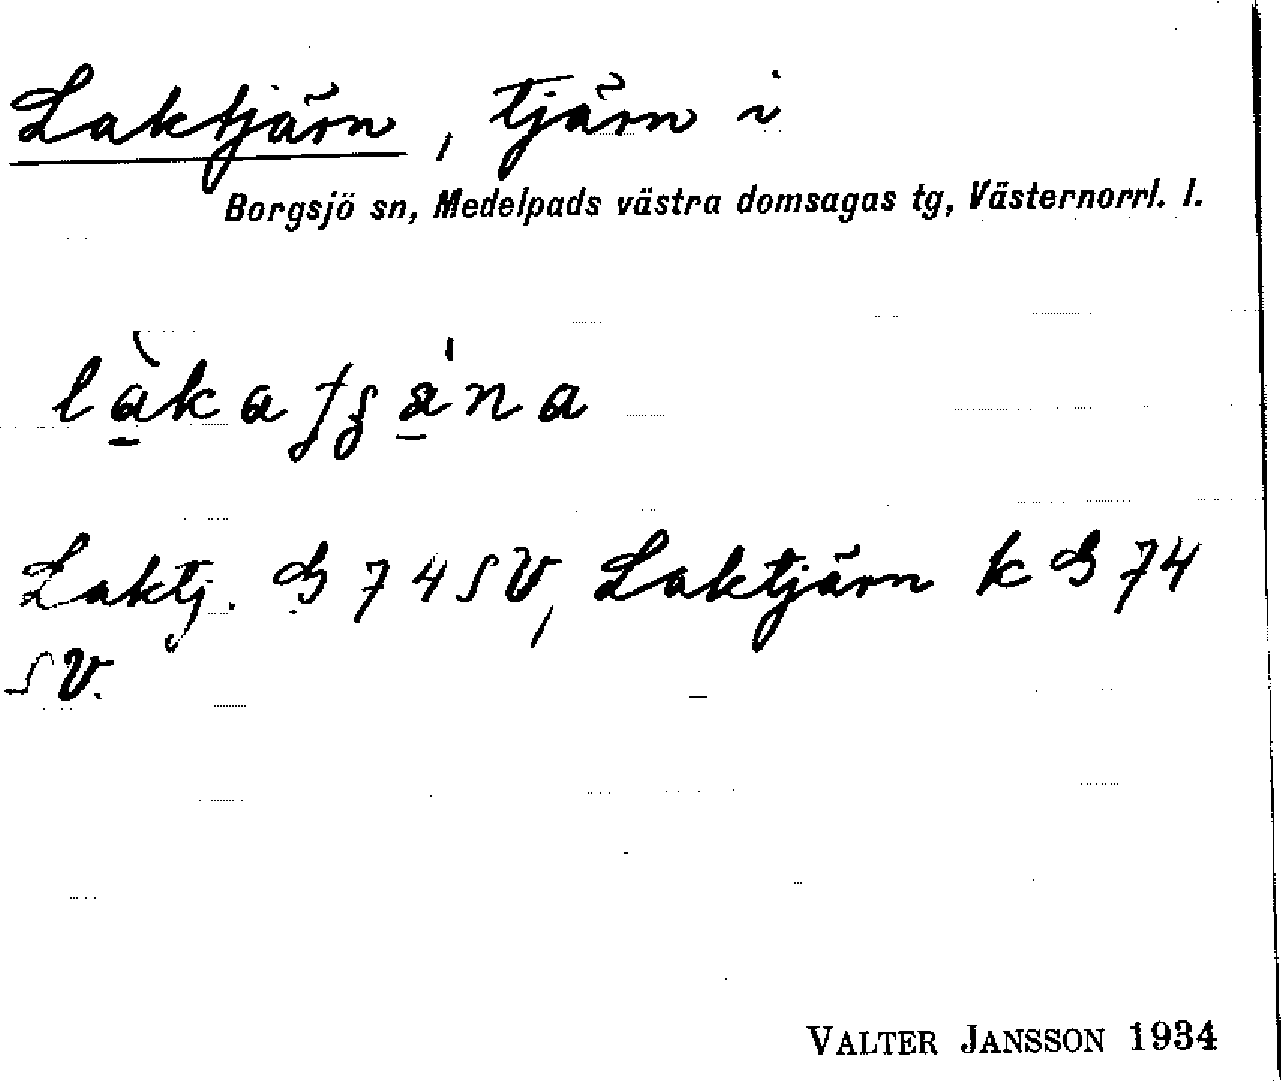 Laktjärn, tjärn i
Borgsjö sn, Medelpads västra domsagas tg, Västernorrl. l.
Laktj. G 74 SV, Laktjärn k G 74
SV.
VALTER JANSSON 1934